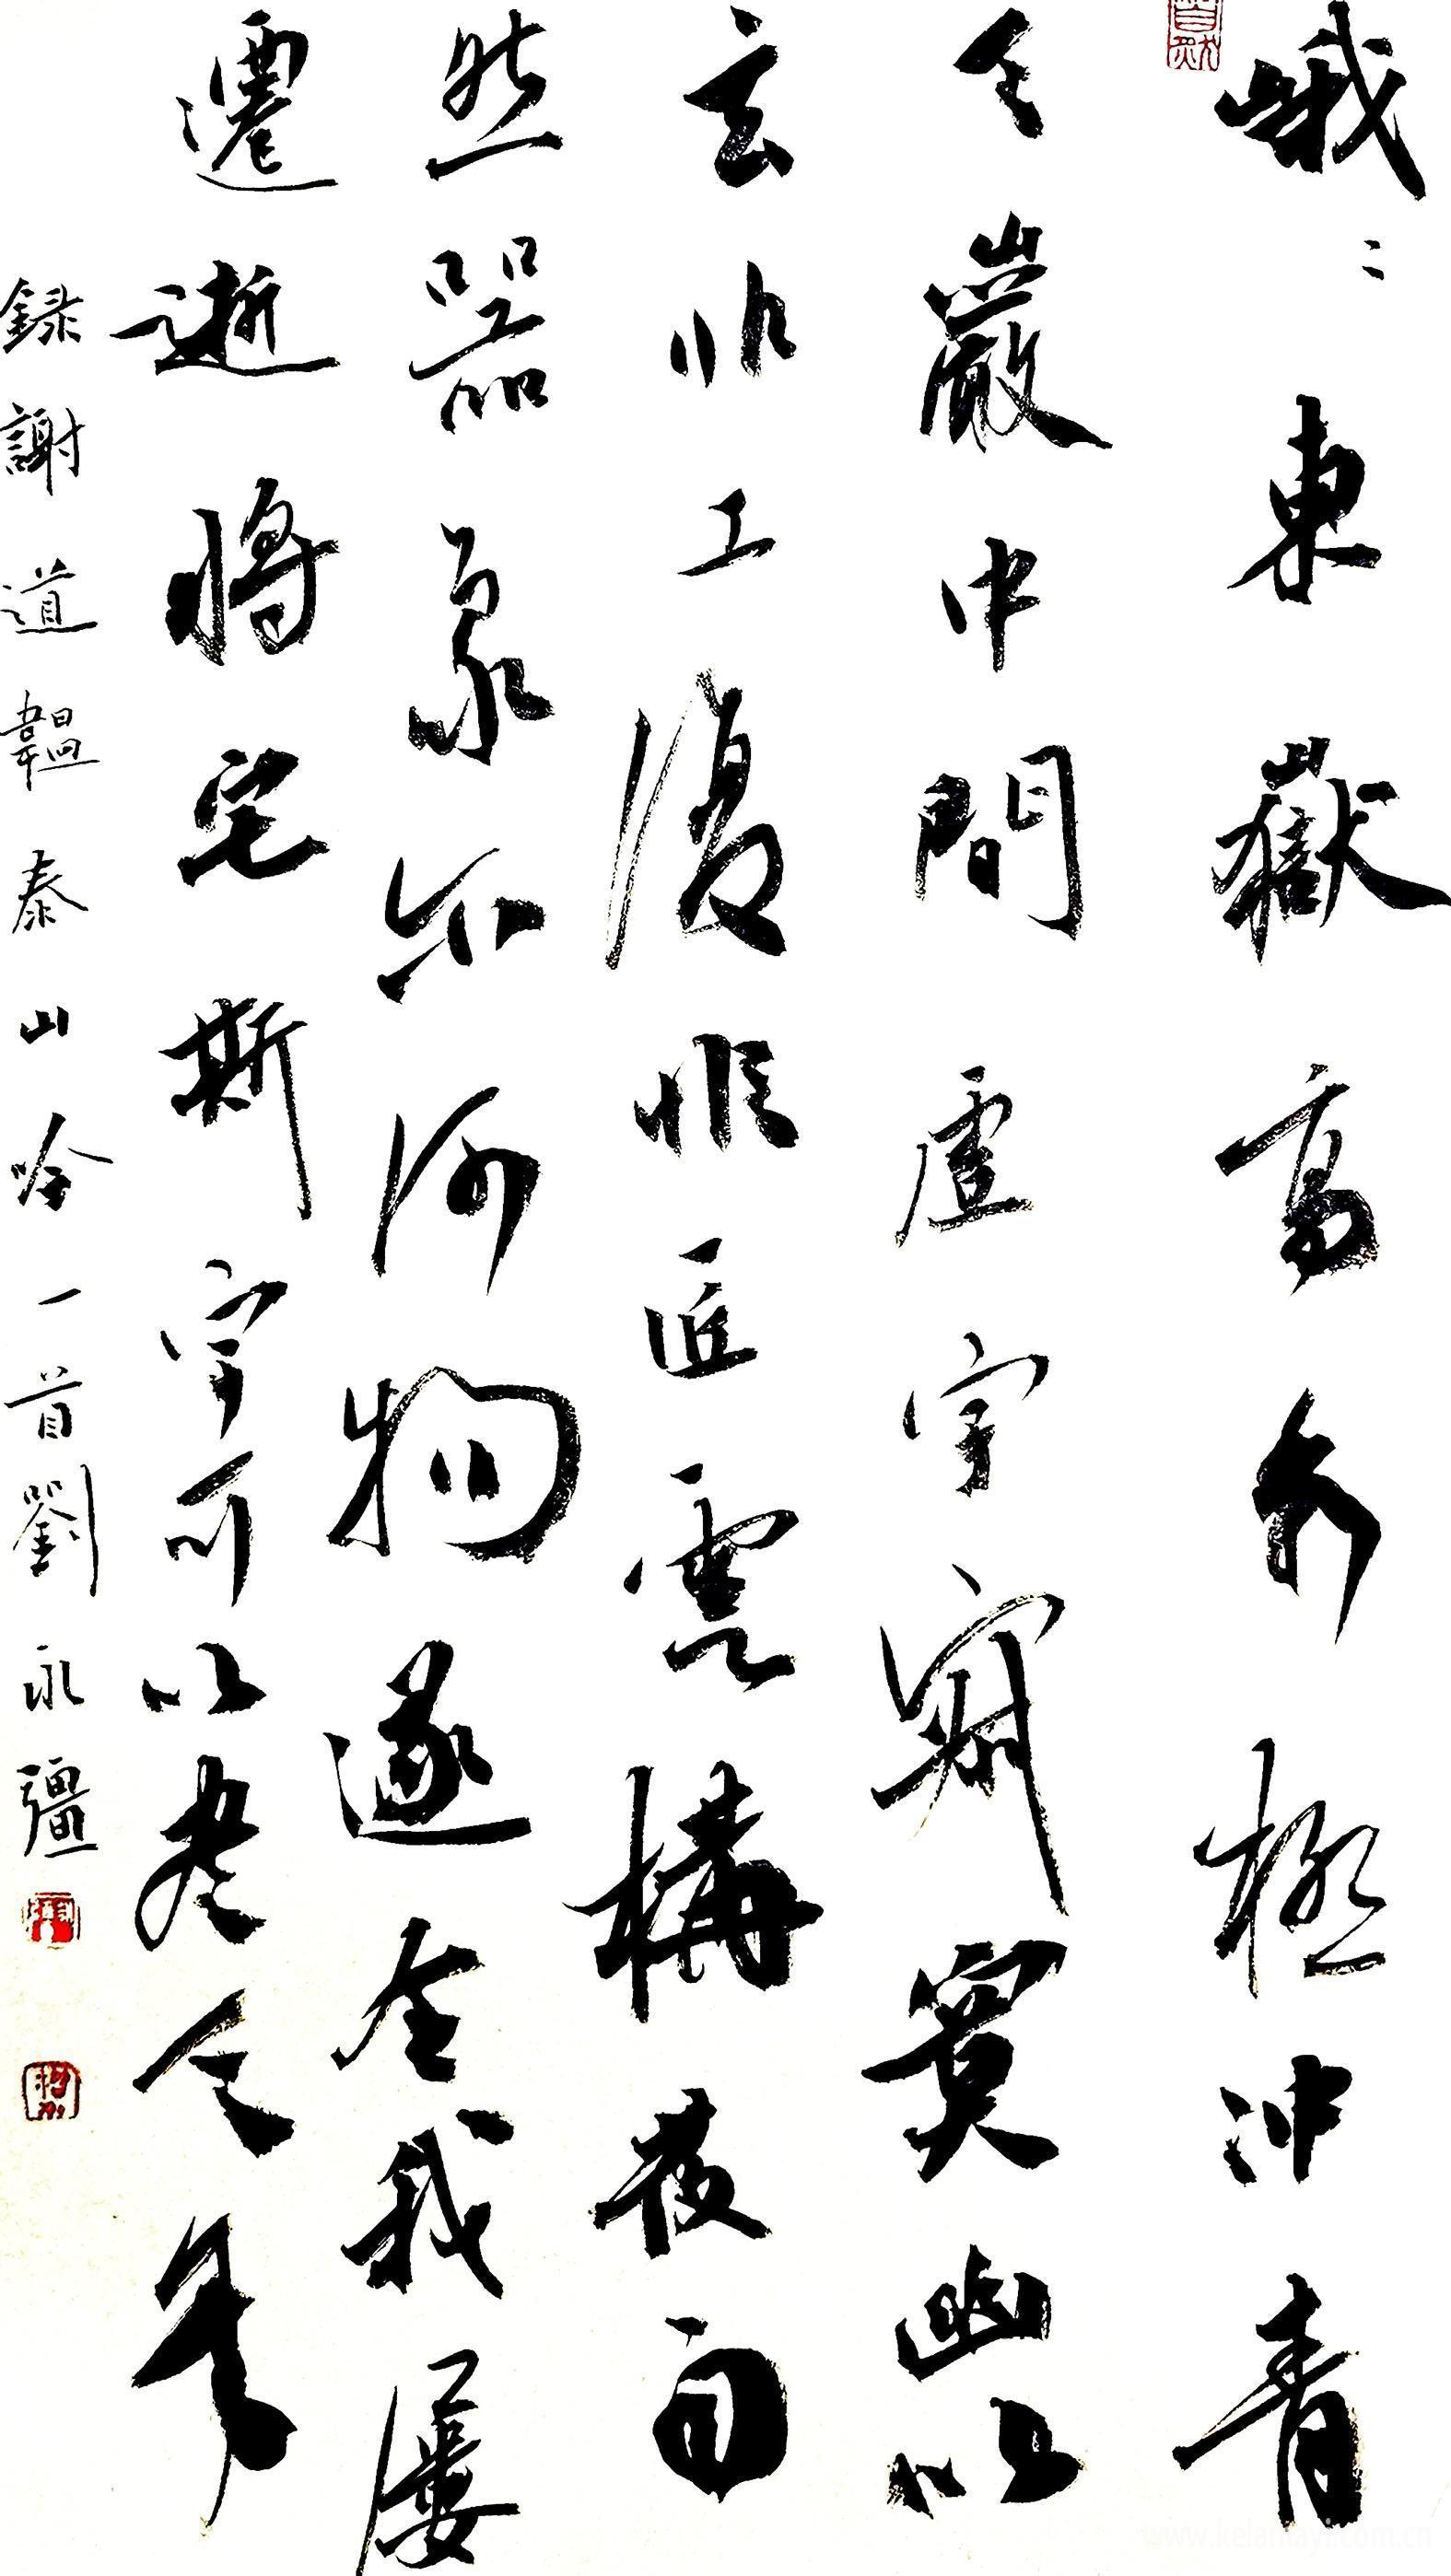 峨〻東嶽高秀極冲青
天巖中間虛宇寂寞幽以
玄非工復非匠雲構發自
然器象尔何物遂令我屢
遷逝將宅斯宇可以尽天年
録謝道韞泰山吟一首劉永彊
www.kelamayi.com.cn